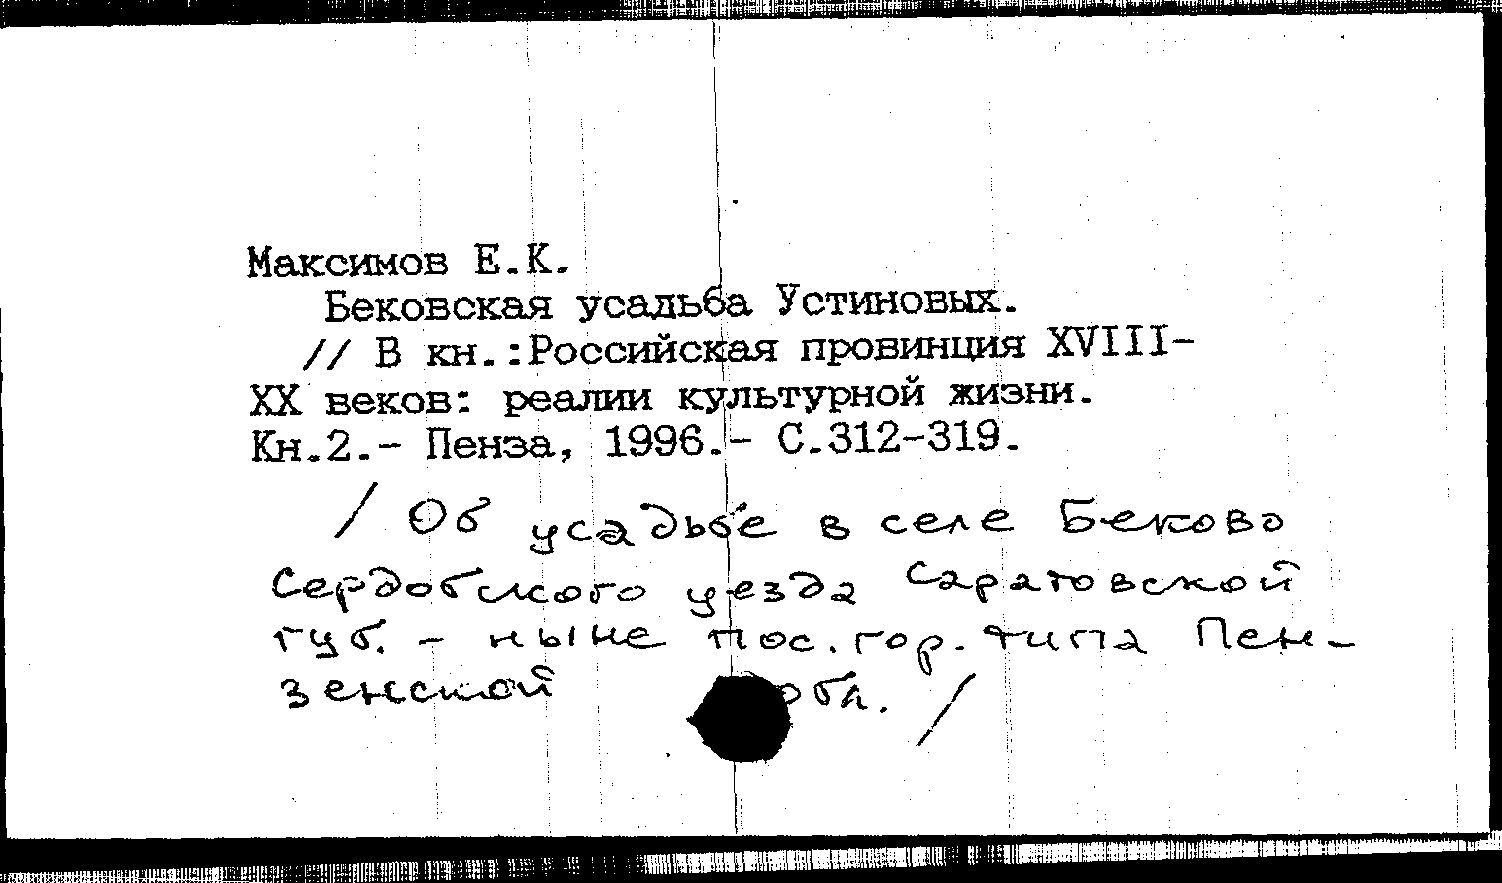 Максимов Е.К.
Бековская усадьба Устиновых.
// В кн.:Российская провинция XVIII-
XX веков: реалии культурной жизни.
Кн.2.- Пенза, 1996.- С.312-319.
/ Об усадьбе в селе Беково
Сердобского уезда Саратовской
губ. - ныне пос. гор. типа Пен-
зенской обл. /